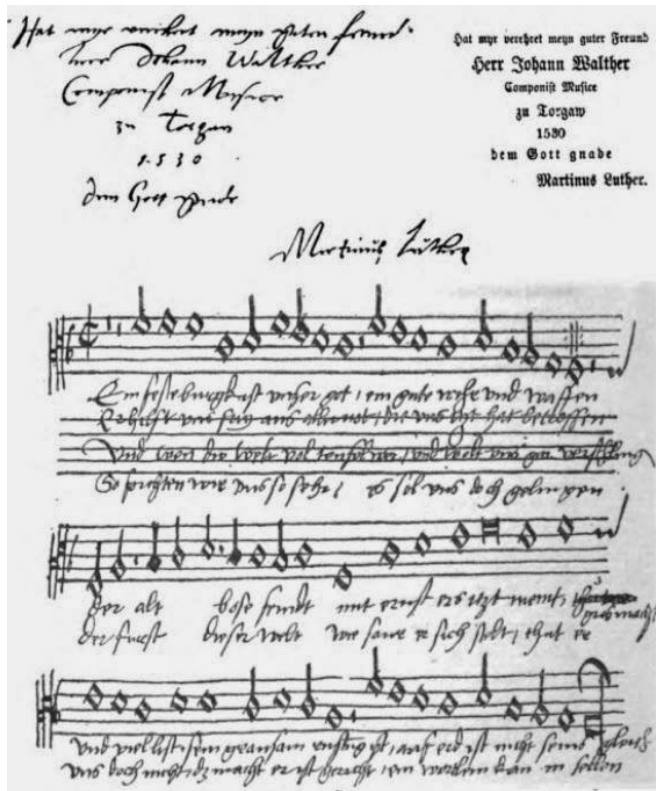 Hat myr verehret meyn guter freund
herr Johann Walther
Componist Musice
zu Torgaw
1530
dem Gott gnade
Martinus Luther
Hat myr verehret meyn guter Freund
Herr Johann Walther
Componist Musice
zu Torgaw
1530
dem Gott gnade
Martinus Luther.
Ein feste burgk ist unser got, ein gute wehr und waffen
Er hilfft uns frey aus aller not, die uns itzt hat betroffen
Und wen die welt vol teufel wer, und wolt uns gar verschling
So furchten wir uns so sehr, es sol uns doch gelingen
der alt bose feindt mit ernst ers itzt meint, gros macht
der furst dieser welt wie saur er sich stelt, thut er
und viel list sein grausam ist, auf erd ist nicht seins gleich
uns doch nicht, dz macht er ist gericht, ein wortlein kan in fellen